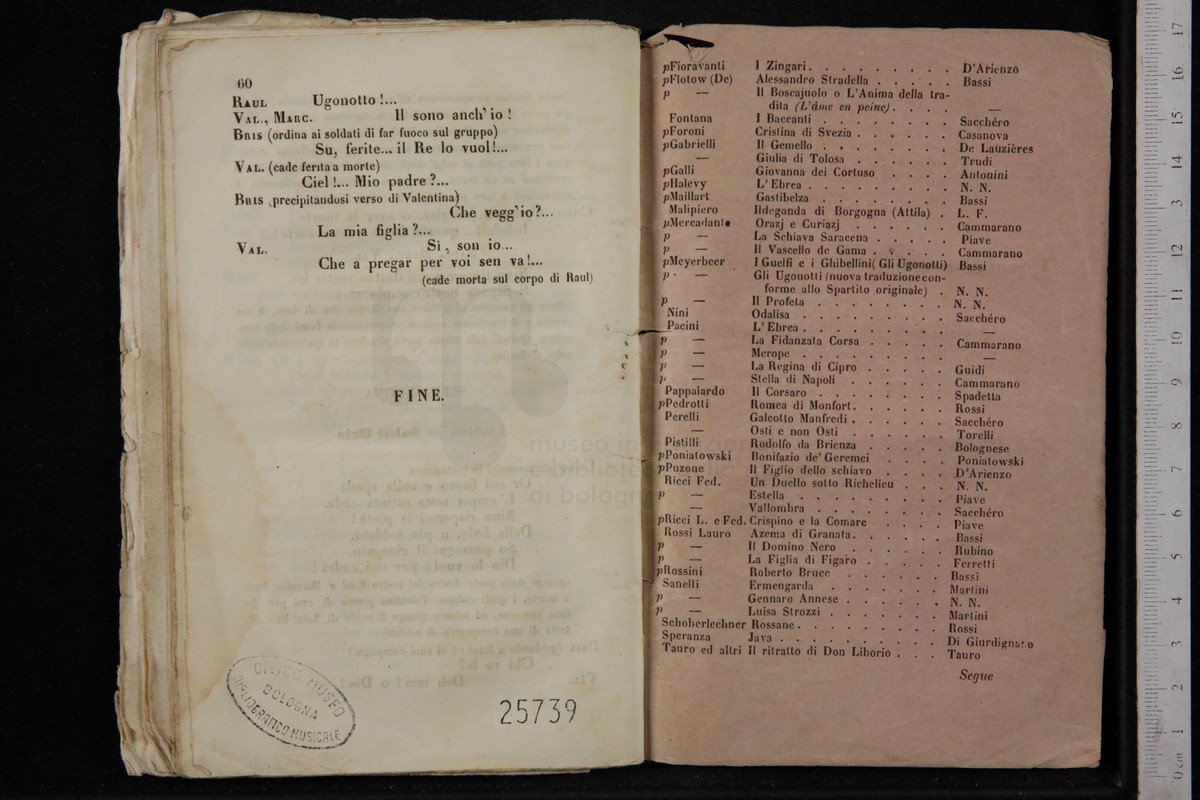 60
RAUL Ugonotto !...
VAL., MARC. Il sono anch' io !
BRIS (ordina ai soldati di far fuoco sul gruppo)
Su, ferite... il Re lo vuol !...
VAL. (cade ferita a morte)
Ciel !... Mio padre ?...
BRIS (precipitandosi verso di Valentina)
Che vegg'io ?...
La mia figlia ?...
VAL. Si, son io...
Che a pregar per voi sen va !...
(cade morta sul corpo di Raul)
FINE.
CIVICO MUSEO
BOLOGNA
BIBLIOGRAFICO MUSICALE
25739
pFioravanti I Zingari . . . . . . . . . D'Arienzo
pFlotow (De) Alessandro Stradella . . . . . Bassi
p — Il Boscajuolo o L'Anima della tra-
dita (L'âme en peine) . . . . —
Fontana I Baccanti . . . . . . . . Sacchéro
pForoni Cristina di Svezia . . . . . . Casanova
pGabrielli Il Gemello . . . . . . . . De Lauzières
— Giulia di Tolosa . . . . . . Trudi
pGalli Giovanna dei Cortuso . . . . Antonini
pHalevy L' Ebrea . . . . . . . . . N. N.
pMaillart Gastibelza . . . . . . . . Bassi
Malipiero Ildegonda di Borgogna (Attila) . L. F.
pMercadante Orazj e Curiazj . . . . . . Cammarano
p — La Schiava Saracena . . . . . Piave
p — Il Vascello de Gama . . . . . Cammarano
pMeyerbeer I Guelfi e i Ghibellini (Gli Ugonotti) Bassi
p — Gli Ugonotti (nuova traduzione con-
forme allo Spartito originale) . N. N.
p — Il Profeta . . . . . . . . N. N.
Nini Odalisa . . . . . . . . . Sacchéro
Pacini L' Ebrea . . . . . . . . . —
p — La Fidanzata Corsa . . . . . Cammarano
p — Merope . . . . . . . . . —
p — La Regina di Cipro . . . . . Guidi
p — Stella di Napoli . . . . . . Cammarano
Pappalardo Il Corsaro . . . . . . . . Spadetta
pPedrotti Romea di Monfort . . . . . . Rossi
Perelli Galeotto Manfredi . . . . . . Sacchéro
— Osti e non Osti . . . . . . Torelli
Pistilli Rodolfo da Brienza . . . . . Bolognese
pPoniatowski Bonifazio de' Geremei . . . . Poniatowski
pPuzone Il Figlio dello schiavo . . . . D'Arienzo
Ricci Fed. Un Duello sotto Richelieu . . . N. N.
p — Estella . . . . . . . . . Piave
— Vallombra . . . . . . . . Sacchéro
pRicci L. e Fed. Crispino e la Comare . . . . Piave
Rossi Lauro Azema di Granata . . . . . . Bassi
p — Il Domino Nero . . . . . . Rubino
p — La Figlia di Figaro . . . . . Ferretti
pRossini Roberto Bruce . . . . . . Bassi
Sanelli Ermengarda . . . . . . . Martini
p — Gennaro Annese . . . . . . N. N.
p — Luisa Strozzi . . . . . . . Martini
Schoberlechner Rossane . . . . . . . . . Rossi
Speranza Java . . . . . . . . . . Di Giurdignano
Tauro ed altri Il ritratto di Don Liborio . . . Tauro
Segue